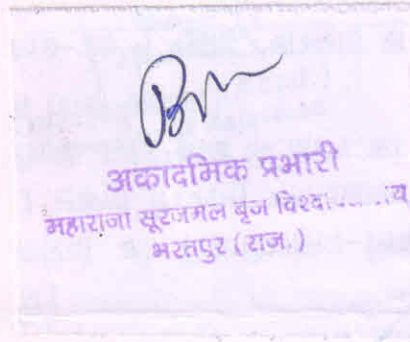 अकादमिक प्रभारी
महाराजा सूरजमल बृज
भरतपुर (राज.)